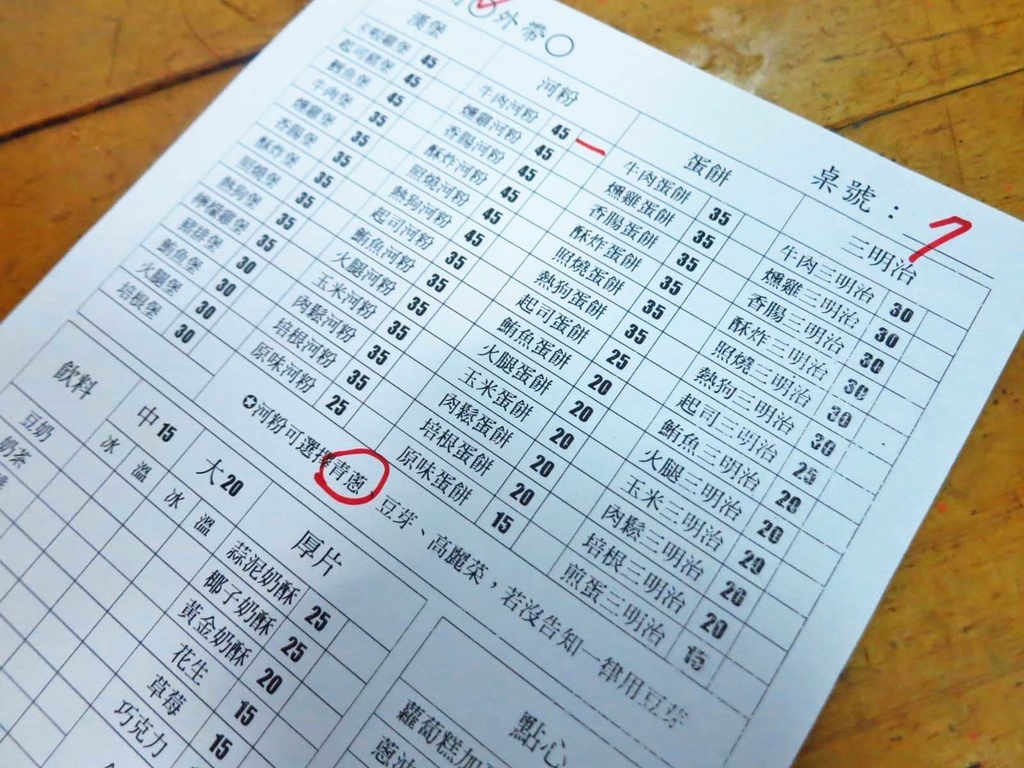 外帶
桌號：7
漢堡
45
45
鱈魚堡 45
牛肉堡 35
燻雞堡 35
香腸堡 35
酥炸堡 35
照燒堡 35
熱狗堡 35
檸檬雞堡 35
豬排堡 30
鮪魚堡 30
火腿堡 30
培根堡 30
河粉
牛肉河粉 45
燻雞河粉 45
香腸河粉 45
酥炸河粉 45
照燒河粉 45
熱狗河粉 45
起司河粉 35
鮪魚河粉 35
火腿河粉 35
玉米河粉 35
肉鬆河粉 35
培根河粉 35
原味河粉 25
蛋餅
牛肉蛋餅 35
燻雞蛋餅 35
香腸蛋餅 35
酥炸蛋餅 35
照燒蛋餅 35
熱狗蛋餅 35
起司蛋餅 25
鮪魚蛋餅 20
火腿蛋餅 20
玉米蛋餅 20
肉鬆蛋餅 20
培根蛋餅 20
原味蛋餅 15
三明治
牛肉三明治 30
燻雞三明治 30
香腸三明治 30
酥炸三明治 30
照燒三明治 30
熱狗三明治 30
起司三明治 25
鮪魚三明治 20
火腿三明治 20
玉米三明治 20
肉鬆三明治 20
培根三明治 20
煎蛋三明治 15
✪河粉可選擇青蔥、豆芽、高麗菜，若沒告知一律用豆芽
飲料 中15 大20
冰 溫 冰 溫
豆奶
奶茶
厚片
蒜泥奶酥 25
椰子奶酥 25
黃金奶酥 20
花生 15
草莓 15
巧克力
點心
蘿蔔糕加
蔥油